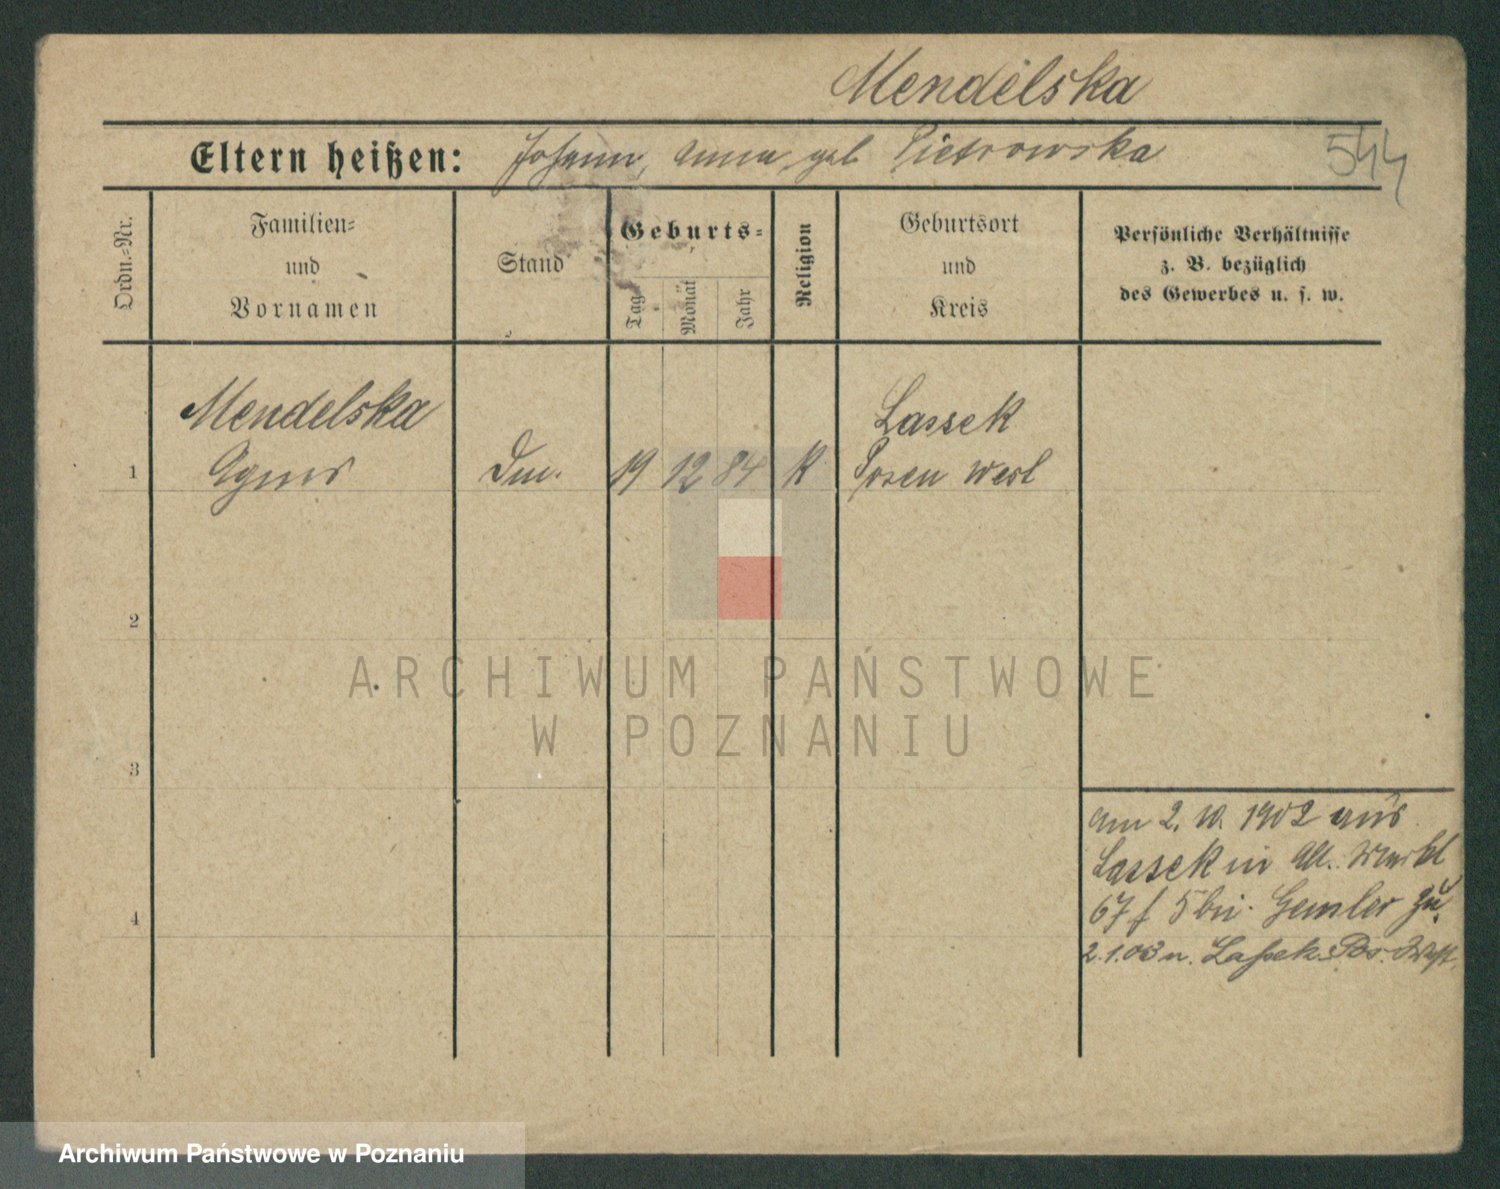 Mendelska
Eltern heißen: Johann, Anna geb Pietrowska
544
Ordn.-Nr.
Familien-
und
Vornamen
Stand
Geburts-
Tag
Monat
Jahr
Religion
Geburtsort
und
Kreis
Persönliche Verhältnisse
z. B. bezüglich
des Gewerbes u. s. w.
Mendelska
1 Agnes Dm. 19 12 84 K
Lassek
Posen West
2
3
4
ARCHIWUM PAŃSTWOWE
W POZNANIU
am 2. 10. 1902 aus
Lassek in Alt. Markt
67 f 5 bei Gensler zu.
2.1.03 n. Lassek Pos. West.
Archiwum Państwowe w Poznaniu